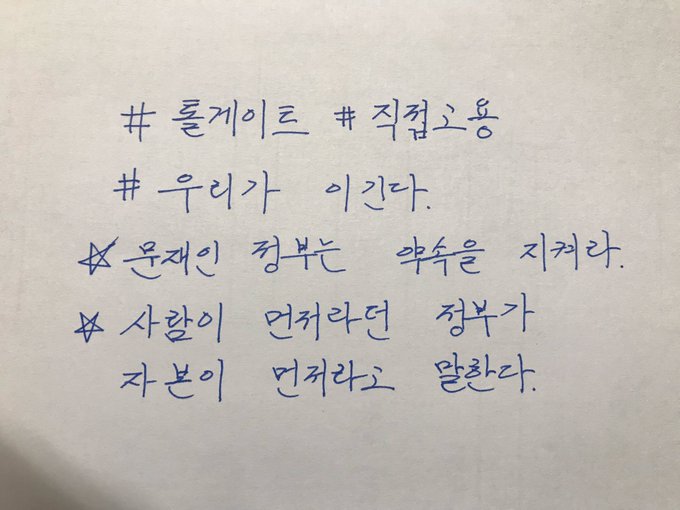 # 톨게이트 # 직접고용
# 우리가 이긴다.
☆ 문재인 정부는 약속을 지켜라.
☆ 사람이 먼저라던 정부가
자본이 먼저라고 말한다.